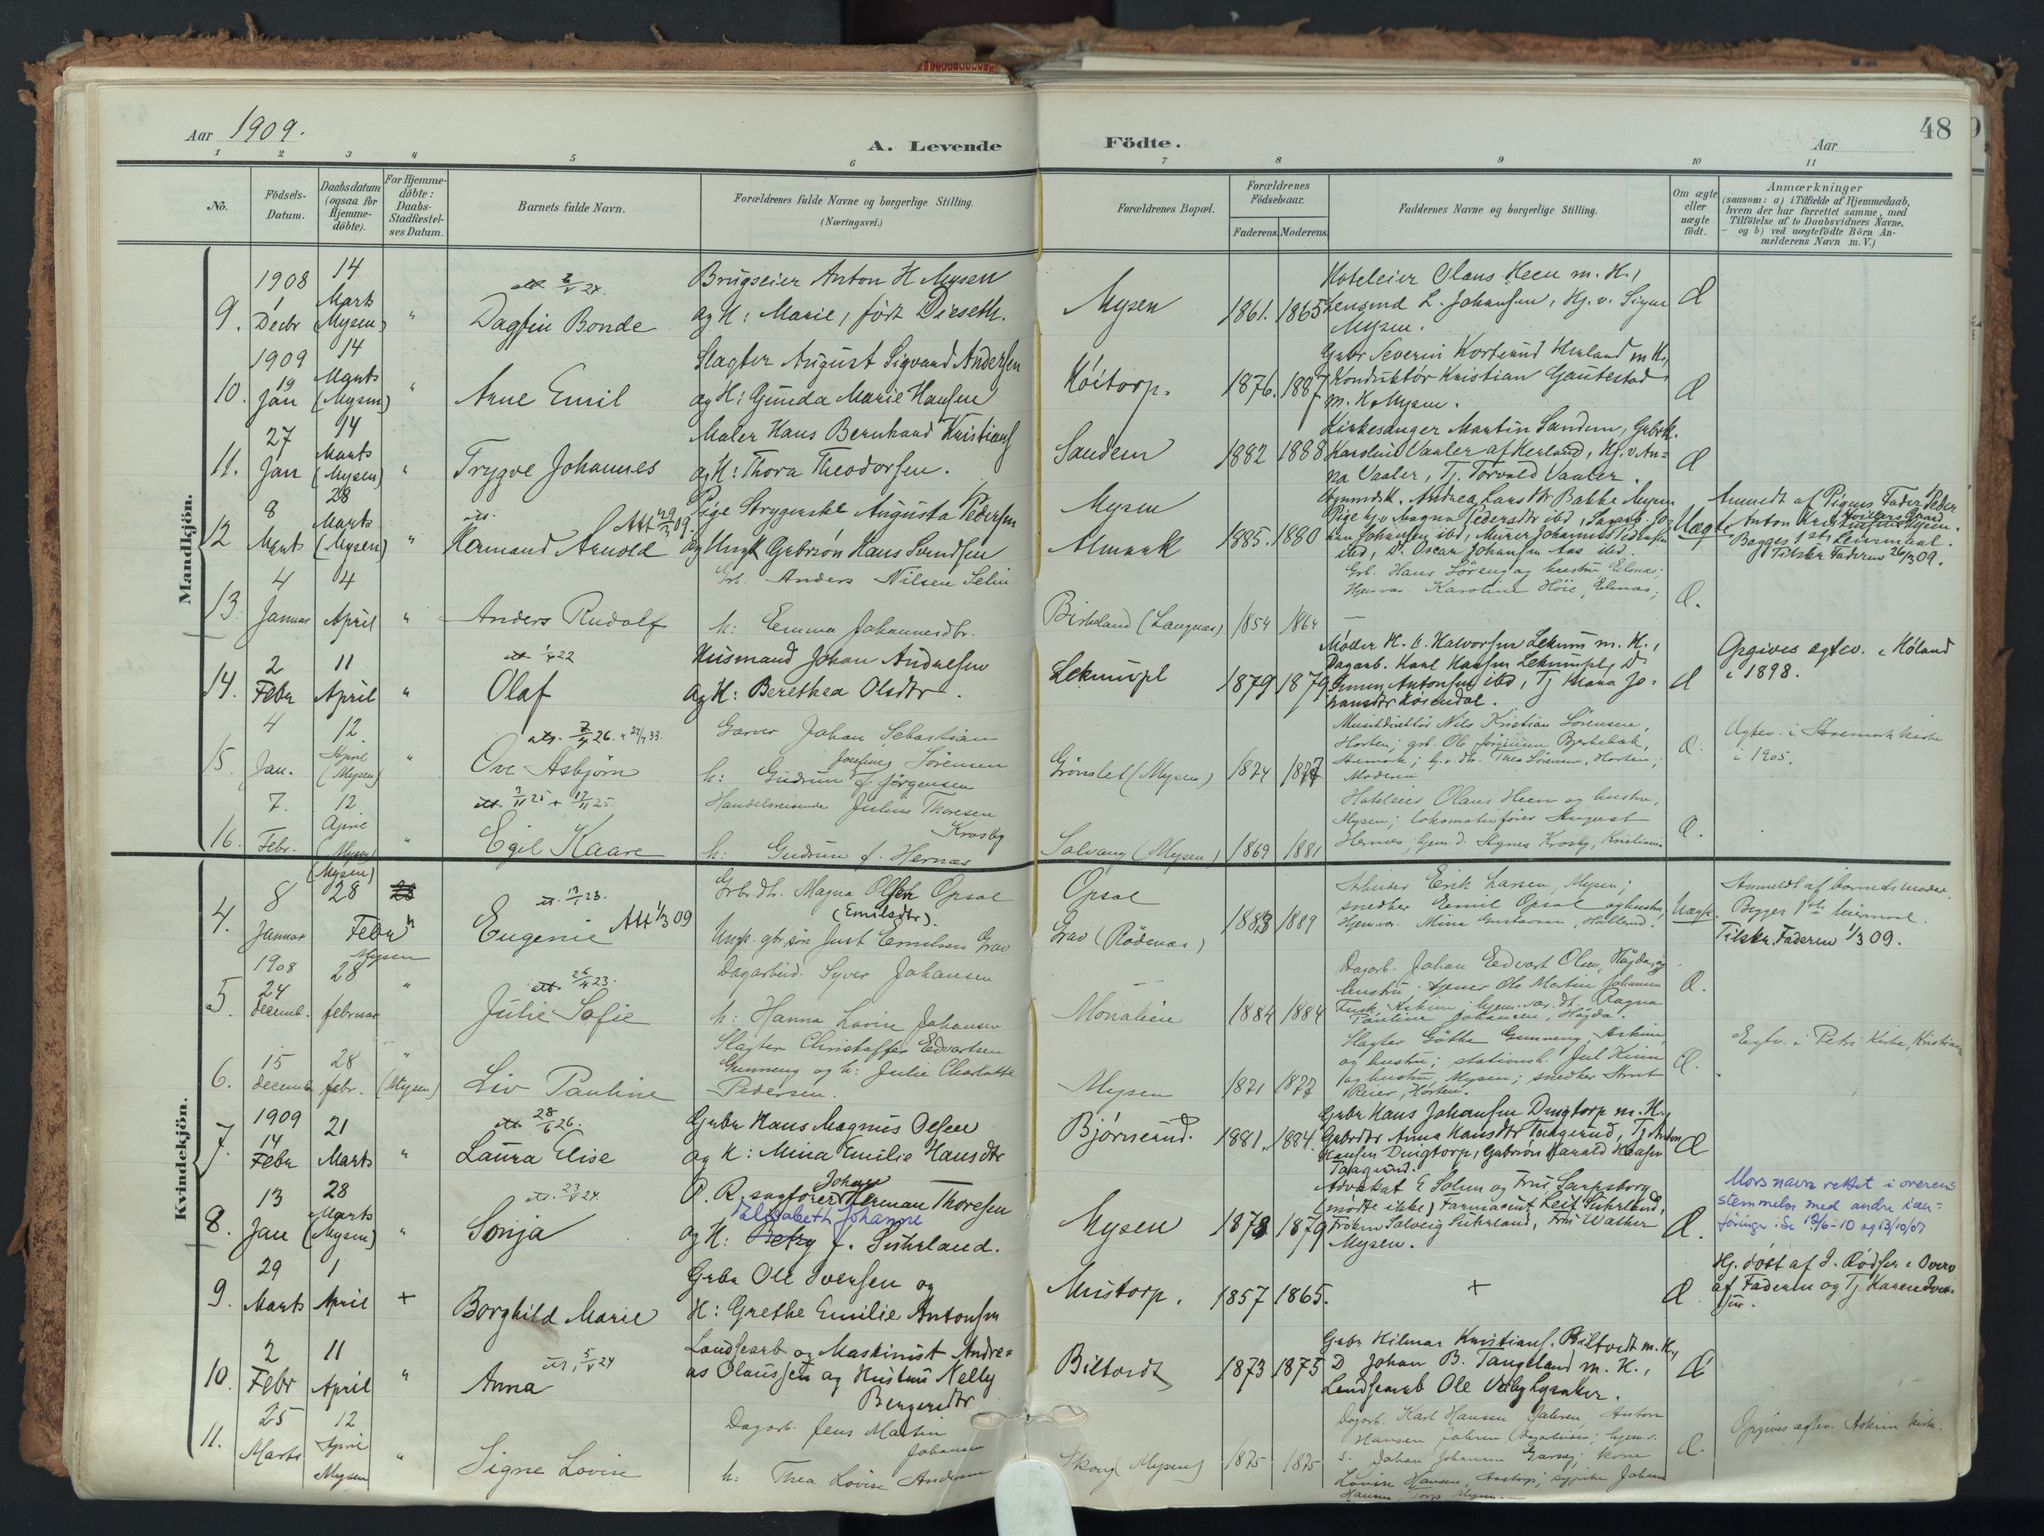 Aar 1909.
A. Levende Födte.
Aar
48
1 2 3 4 5 6 7 8 9 10 11
No.
Födsels-Datum.
Daabsdatum (ogsaa for Hjemme-döbte).
For Hjemme-döbte: Daabs-Stadfæstel-ses Datum.
Barnets fulde Navn.
Forældrenes fulde Navne og borgerlige Stilling.
(Næringsvei.)
Forældrenes Bopæl.
Forældrenes Födselsaar.
Faderens. Moderens.
Faddernes Navne og borgerlige Stilling.
Om ægte eller uægte födt.
Anmærkninger
(saasom: a) i Tilfælde af Hjemmedaab,
hvem der har forrettet samme, med
Tilföielse af to Daabsvidners Navne,
— og b) ved uægtefödte Börn An-
melderens Navn m. V.)
Mandkjön.
9. 1908 1 Decbr 14 Marts (Mysen) " Dagfin Bonde
Brugseier Anton H Mysen
og H: Marie, født Dirseth.
Mysen 1861. 1865
Hoteleier Olaus Heen m. H.,
Lensmd L. Johansen, Hj. v. Signe
Mysen.
Æ
10. 1909 19 Jan 14 Marts (Mysen) " Arne Emil
Slagter August Sigvand Andersen
og H: Gunda Marie Hansen
Köitorp. 1876. 1887
Gbr Severin Korterud Herland m H.,
Konduktör Kristian Gautestad
m. H. Mysen.
Æ
11. 27 Jan 14 Marts (Mysen) " Trygve Johannes
Maler Hans Bernhard Kristians.
og H: Thora Theodorsen.
Sandem 1882 1888
Kirkesanger Martin Sandem, Gbrk.
Karoline Vaaler af Herland, Hj. v An-
na Vaaler, Tj. Torvald Vaaler.
Æ
12 8 Marts 28 Marts (Mysen) " Hermand Arnold Att 29/3 09.
Pige Strygerske Augusta Pedersen
og Ungk Gabrsøn Hans Svendsen
Mysen
Almark 1885. 1880
Uægte
Anmeldt af Pigens Fader Peder
Anton Kristiansen Mysen.
Begges 1ste Leiermaal.
Tilskr. Faderen 26/3 09.
13. 4 Januar 4 April " Anders Rudolf
Grb. Anders Nilsen Selin
h: Emma Johannesdtr.
Birkeland (Langnæs) 1854 1864
Grb. Hans Søreng og hustru, Eidnæs;
Hjemvær. Karoline Höie, Eidnæs;
Æ.
14. 2 Febr 11 April " att 1/4 22 Olaf
Husmand Johan Andresen
og H: Berethea Olsdtr.
Lekumpl 1879 1879
Møller H. C. Halvorsen Lekum m. H.,
Dagarb. Karl Hansen Lekumpl, D.
Simen Antonsen ibd, Tj Maria Jo-
hansdtr Rosendal.
Æ
Opgives ægtev. i Höland
i 1898.
15. 4 Jan. 12. April (Mysen) " att. 7/4 26. + 27/7 33. Ove Asbjörn
Garver Johan Sebastian
Josefsen Sörensen
h: Gudrun f. Jörgensen
Grönsled (Mysen) 1874 1877
Musikdirektör Nils Kristian Sörensen,
Horten; grb. Ole Jörgensen Bjerkebæk,
Aremark; hj.v. dtr. Thea Sörensen, Horten;
Moderen
Æ.
Ægtev. i Aremark kirke
i 1905.
16. 7. Febr. 12. April (Mysen) " att. 3/11 25 + 12/11 25. Egil Kaare
Handelsreisende Julius Thoresen
Krosby
h: Gudrun f. Hernæs
Solvang (Mysen) 1869 1881
Hoteleier Olaus Heen og hustru,
Mysen; lokomotivförer August
Hernæs; Hjem.d. Agnes Krosby, Kristiania
Æ.
Kvindekjön.
4. 8 Januar (Mysen) 28 Febr " Eugenie Att 1/3 09
Grbr.dtr. Magna Olsen Opsal
(Emilsdtr).
Ungk. gbr.søn Just Emilsen Grav
Opsal
Grav (Rödenæs) 1883 1889
Arbeider Erik Larsen, Mysen;
snedker Emil Opsal og hustru,
Hjemvær. Mina Gustavsen, Hallerud.
Uægt.
Anmeldt af barnets moder.
Begges 1ste leiermaal.
Tilskr. Faderen 1/3 09.
5. 1908 24 decemb. Mysen 28 februar " att 26/4 23. Julie Sofie
Dagarbeid. Syver Johansen
h: Hanna Lovise Johansen
Monalien 1884 1884
Dagarb. Johan Edvart Olsen, Högda, og
hustru, Ole Martin Johansen
Askim; hjem.vær. dt. Ragna
Pauline Johansen, Högda.
Æ.
6. 15 december 28 febr. " (Mysen) Liv Pauline
Slagter Christoffer Edvartsen
Gunneng og h: Julie Charlotte
Pedersen.
Mysen 1871 1877
Slagter Göthe Gunneng, Askim,
og hustru; stationsb. Jul. Kinn
og hustru, Mysen; snedker Knut
Reier, Horten.
Æ.
Egtv. i Petri Kirke, Kristiania
7. 1909 14 Febr 21 Marts " att 28/6 26. Laura Elise
Gbr Hans Magnus Olsen
og H: Mina Emilie Hansdtr
Björnerud. 1881. 1884.
Gbr Hans Johansen Dingtorp m. H.,
Gbrdtr Anna Hansdtr Taagerud, Tj Anton
Hansen Dingtorp, Gabrsön Harald Hansen
Taagerud.
Æ
8. 13 Jan 28 Marts (Mysen) " att. 23/5 24. Sonja
O. R. sagförer Johan Herman Thoresen
Elisabeth Johanne
og H: Betzy f. Suhrland.
Mysen 1878 1879
Advokat E Solem og Frue Sarpsborg
(mötte ikke) Farmaceut Leif Suhrland,
Fröken Solveig Suhrland, Fru Walher
Mysen.
Æ.
Mors navn rettet i overens
stemmelse med andre inn-
föringer. Se 12/6-10 og 13/10/07
9. 29 Marts 1 April + Borghild Marie
Gbr Ole Iversen og
H: Grethe Emilie Antonsen
Mustorp. 1857 1865.
+
Æ
Hj. döbt af J. Rödsen i Overv.
af Faderen og Tj. Karen Iver-
sen.
10. 2 Febr 11 April " att. 5/5 24 Anna
Landhearb og Maskinist Andre-
as Olaussen og Hustru Nelly
Bergersdtr
Biltvedt 1873 1875
Gbr Hilmar Kristians. Biltvedt m. H.,
D Johan B. Tangeland m. H.,
Landhearb Ole Vestby Lysaker.
Æ
11. 25 Marts 12 April Mysen " Signe Lovise
Dagarb. Jens Martin
Johansen
h: Thea Lovise Andersen
Skoug (Mysen) 1875 1875
Dagarb. Karl Hansen Jahren, Anton
Hansen Jahren Dagarbeider; hjem.
s. Johan Johansen Garsej, kone
Lovise Hansen, Aastorp; sypike Johanne
Hansen, Torp Mysen.
Æ.
Opgives ægtev. Askim kirke.